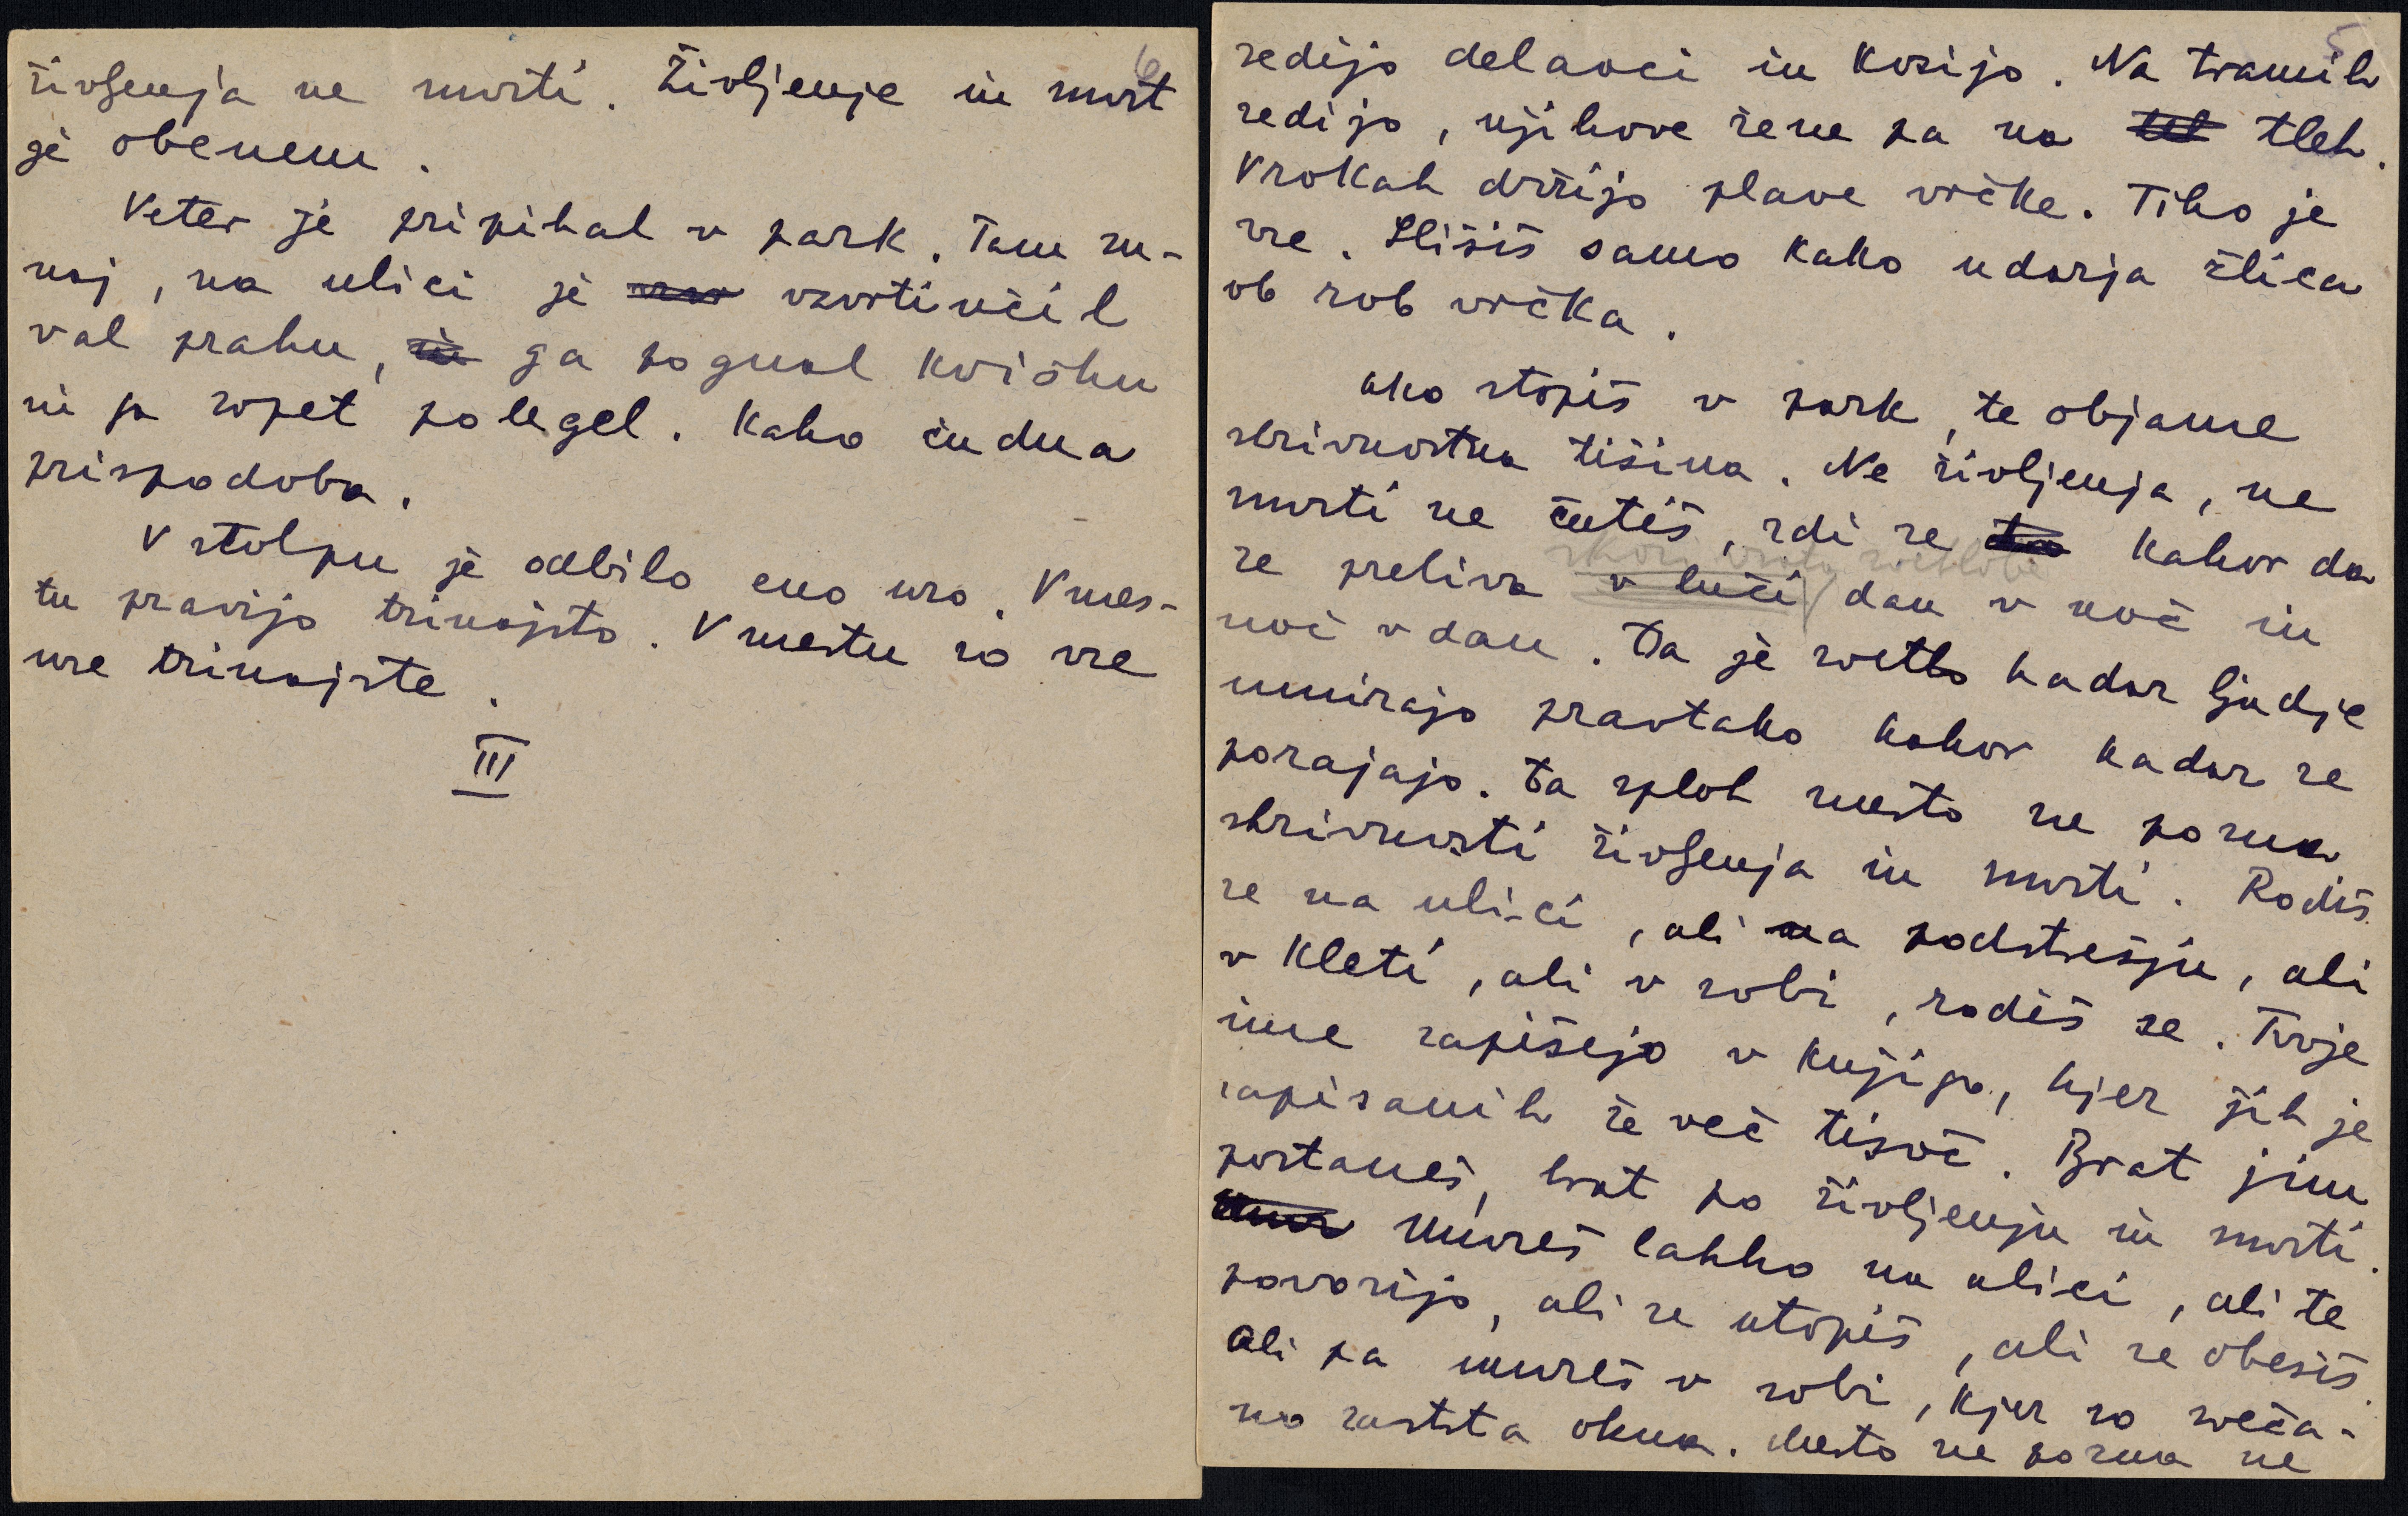 5
sedijo delavci in kosijo. Na tramih
sedijo, njihove žene pa na tleh.
V rokah držijo plave vrčke. Tiho je
vse. Slišiš samo kako udarja žlica
ob rob vrčka.
Ako stopiš v park, te objame
skrivnostna tišina. Ne življenja, ne
smrti ne čutiš, zdi se kakor da
skozi vrsto svetlobe
se preliva v luči dan v noč in
noč v dan. Da je svetlo kadar ljudje
umirajo prav tako kakor kadar se
porajajo. Da sploh mesto ne pozna
skrivnosti življenja in smrti. Rodiš
se na ulici, ali na podstrešju, ali
v kleti, ali v sobi, rodiš se. Tvoje
ime zapišejo v knjigo, kjer jih je
zapisanih že več tisoč. Brat jim
postaneš, brat po življenju in smrti.
Umreš lahko na ulici, ali te
povozijo, ali se utopiš, ali se obesiš.
Ali pa umreš v sobi, kjer so sveča-
no zastrta okna. Mesto ne pozna ne
6
življenja ne smrti. Življenje in smrt
je obenem.
Veter je pripihal v park. Tam zu-
naj, na ulici je vzvrtinčil
val prahu, ga pognal kvišku
in je zopet polegel. Kako čudna
prispodoba.
V stolpu je odbilo eno uro. V mes-
tu pravijo trinajsto. V mestu so vse
ure trinajste.
III